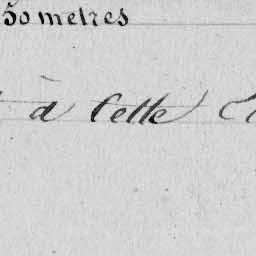 50 metres
à Cette